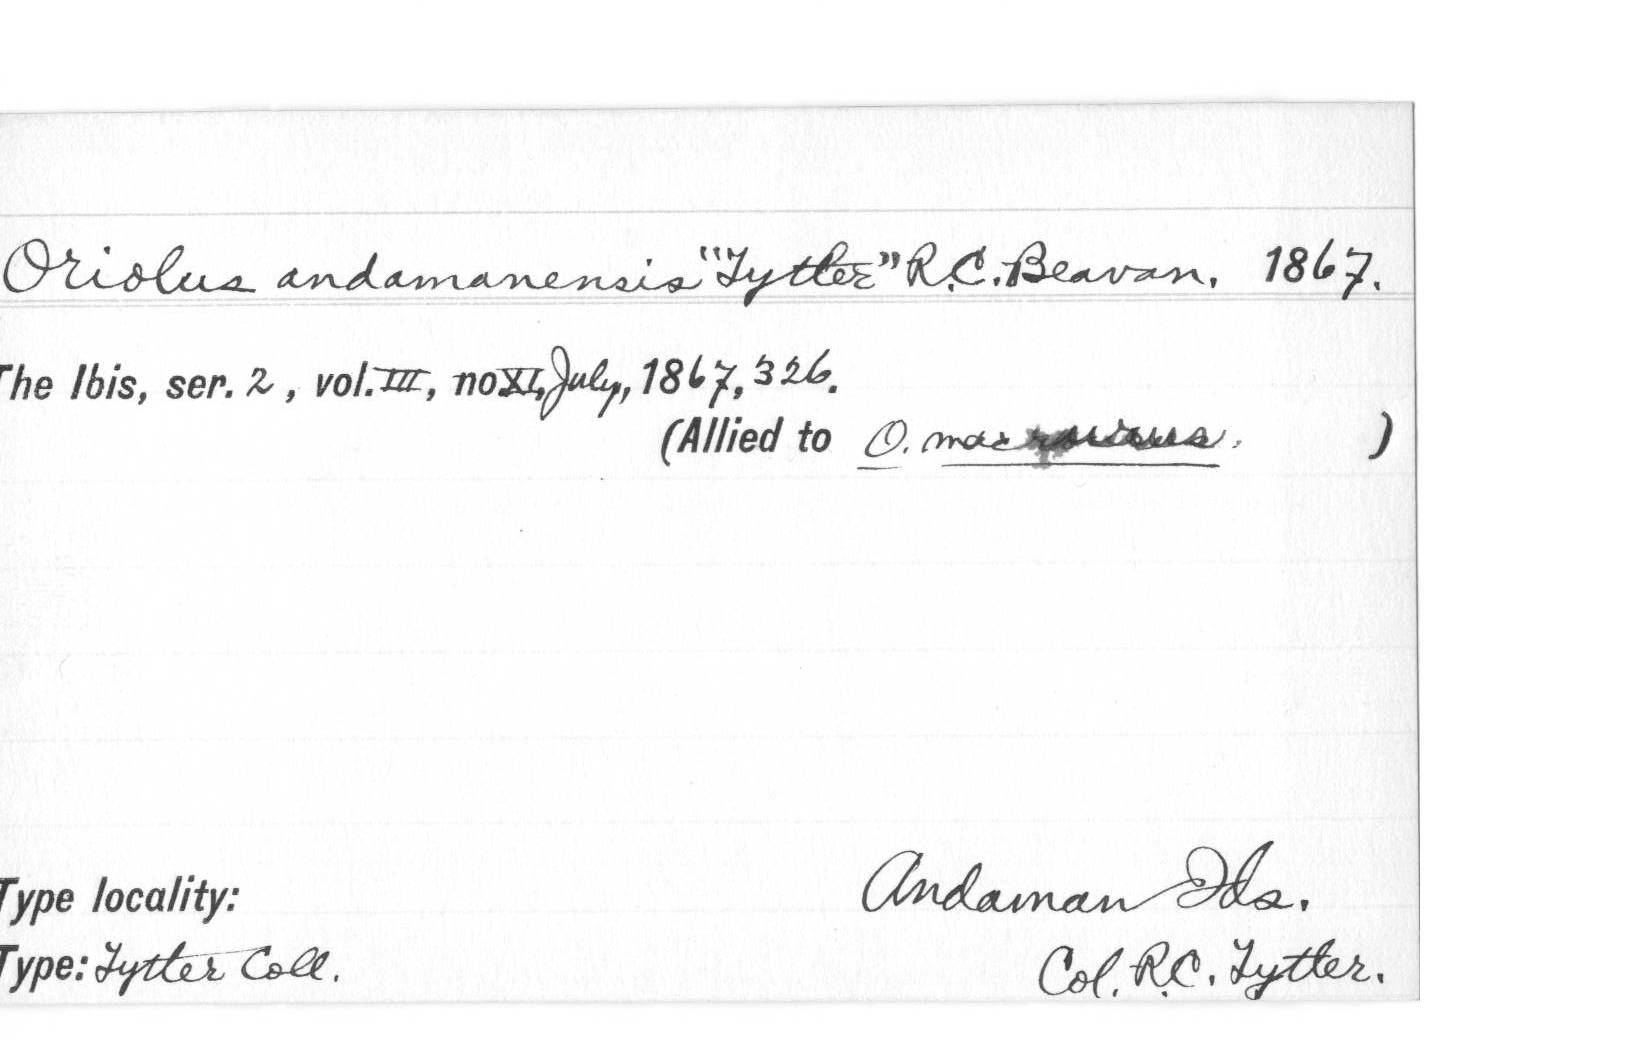 Oriolus andamanensis "Tytler" R.C. Beavan, 1867.
The Ibis, ser. 2, vol. III, no XI, July, 1867, 326.
(Allied to O. )
Type locality: Andaman Ids.
Type: Tytler Coll. Col. R.C. Tytler.